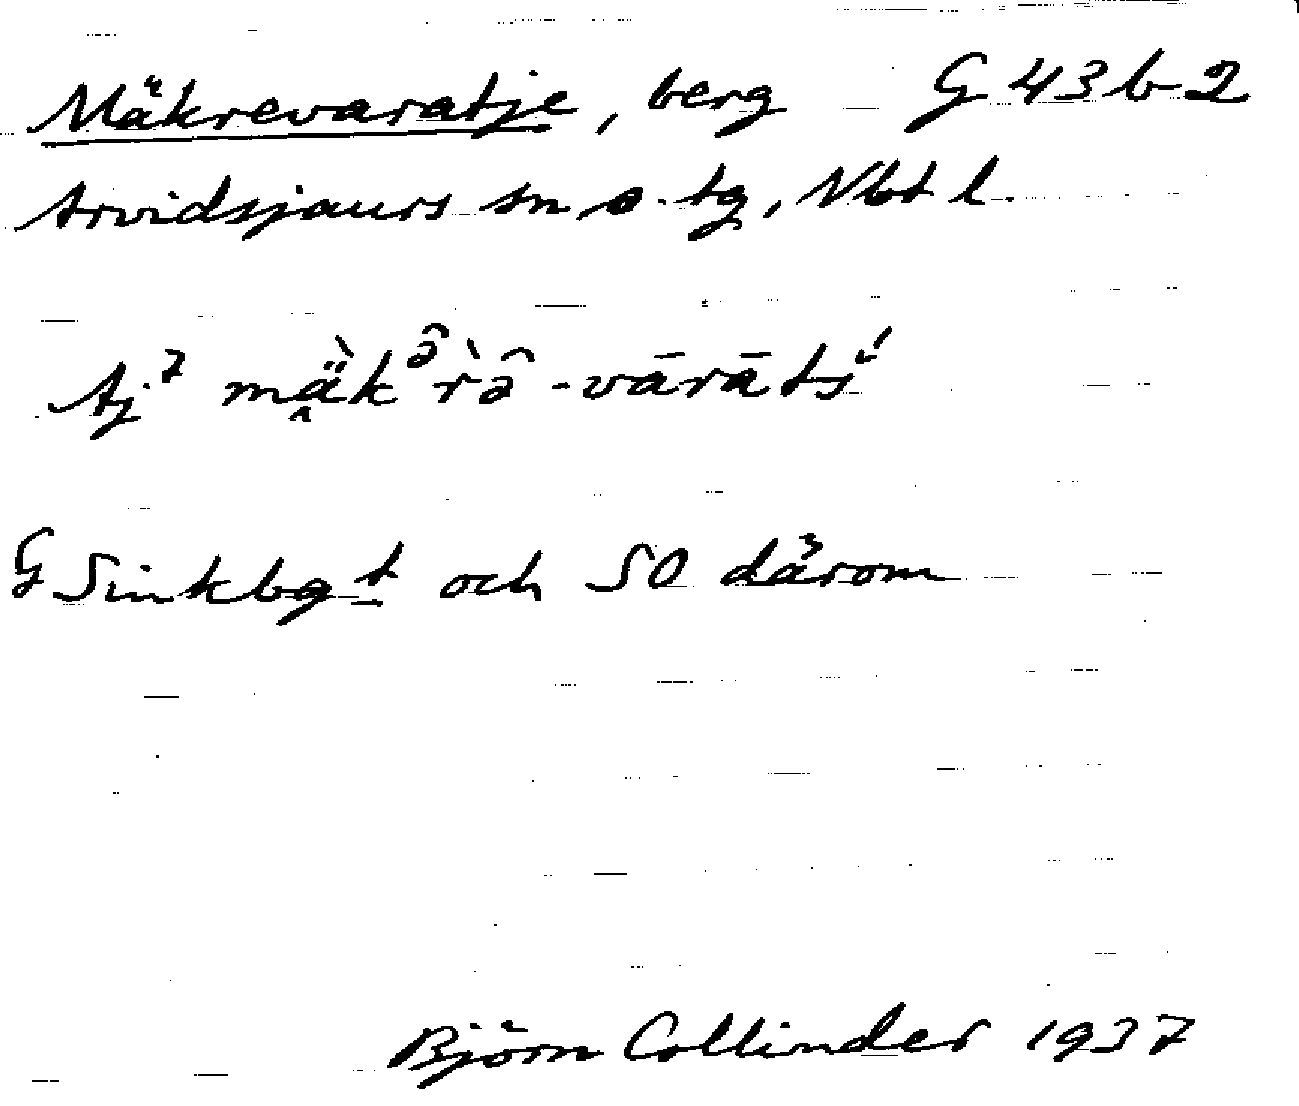 Mäkrevaratje, berg G 43 b 2
Arvidsjaurs sn o. tg, Vbt l.
Aj² mä̭̀kᵊ̂r̀ə̂-vārātś́
G Sinkbgt och SO därom
Björn Collinder 1937